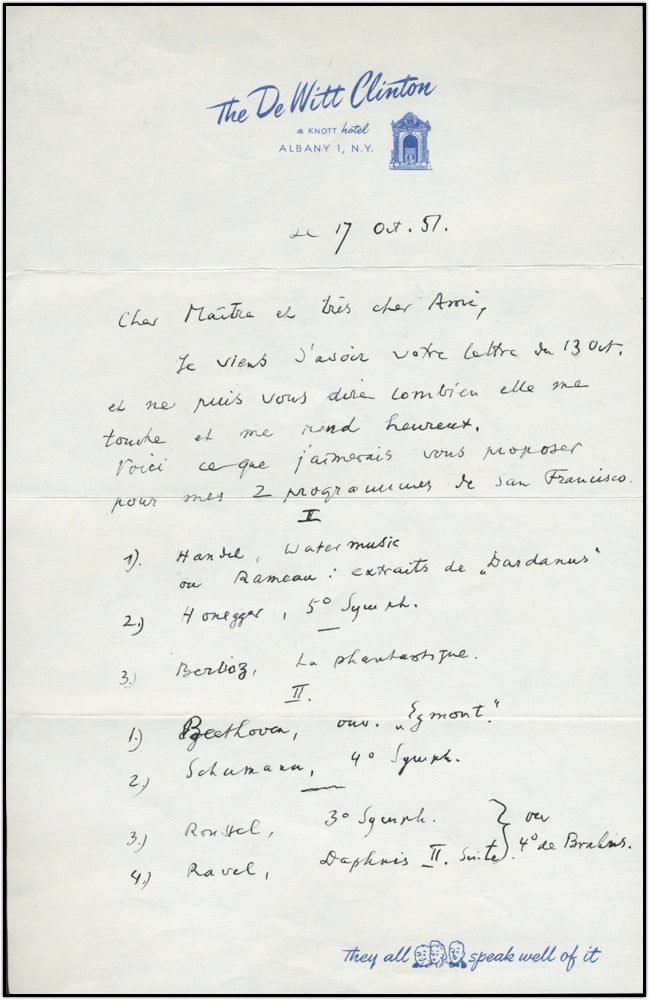 The De Witt Clinton
a KNOTT hotel
ALBANY 1, N.Y.
Le 17 Oct. 51.
Cher Maître et très cher Ami,
Je viens d'avoir votre lettre du 13 Oct.
et ne puis vous dire combien elle me
touche et me rend heureux.
Voici ce que j'aimerais vous proposer
pour mes 2 programmes de San Francisco.
I
1). Handel, Watermusic
ou Rameau : extraits de „Dardanus"
2.) Honegger, 5° Symph.
3.) Berlioz, La phantastique.
II.
1.) Beethoven, ouv. „Egmont."
2.) Schumann, 4° Symph.
3.) Roussel, 3° Symph. } ou
4.) Ravel, Daphnis II. Suite } 4° de Brahms.
They all speak well of it